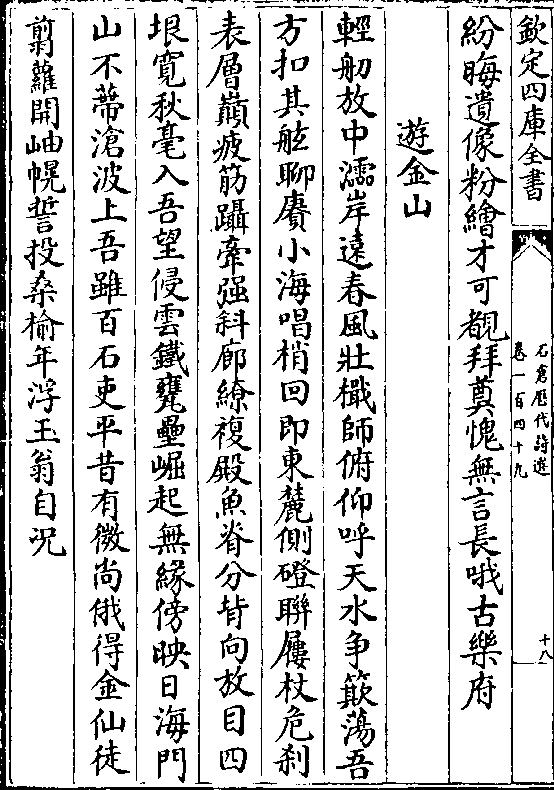 欽定四庫全書
石倉歷代詩選
卷一百四十九
十八
紛晦遺像粉繪才可覩拜奠愧無言長哦古樂府
遊金山
輕舠放中濡岸遠春風壯檥師俯仰呼天水争簸蕩吾
方扣其舷聊賡小海唱梢回即東麓側磴聯屨杖危刹
表層巔疲筋躡牽强斜廊繚複殿魚脊分背向放目四
垠寛秋毫入吾望侵雲鐵甕壘崛起無緣傍映日海門
山不蔕滄波上吾雖百石吏平昔有微尚俄得金仙徒
翦蘿開岫幌誓投桑榆年浮玉翁自况